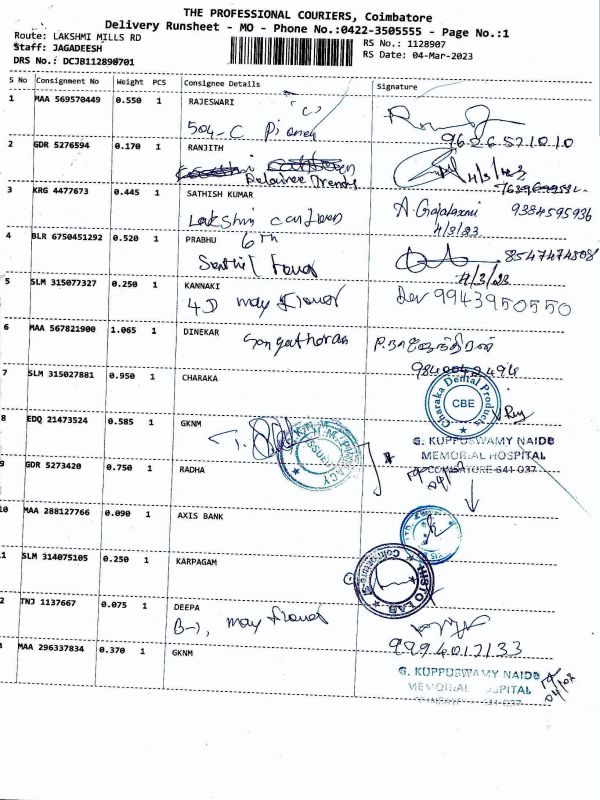 THE PROFESSIONAL COURIERS, Coimbatore
Delivery Runsheet - MO - Phone No.:0422-3505555 - Page No.:1
Route: LAKSHMI MILLS RD
Staff: JAGADEESH
DRS No.: DCJB112890701
RS No.: 1128907
RS Date: 04-Mar-2023
S No Consignment No Weight PCS Consignee Details Signature
1 MAA 569570449 0.550 1 RAJESWARI
504-C
2 GDR 5276594 0.170 1 RANJITH
Trends
3 KRG 4477673 0.445 1 SATHISH KUMAR
Lakshmi
A. Gajalaxmi 9384595936
4/3/23
4 BLR 6750451292 0.520 1 PRABHU
6th
Senthil Tower
8547474508
4/3/23
5 SLM 315077327 0.250 1 KANNAKI
4D may flower
Dev 9943950550
6 MAA 567821900 1.065 1 DINEKAR
7 SLM 315027881 0.950 1 CHARAKA
Charaka Dental Products
CBE
8 EDQ 21473524 0.585 1 GKNM
G. KUPPUSWAMY NAIDU
MEMORIAL HOSPITAL
COIMBATORE-641 037
9 GDR 5273420 0.750 1 RADHA
10 MAA 288127766 0.090 1 AXIS BANK
1 SLM 314075105 0.250 1 KARPAGAM
HISTO LAB
2 TNJ 1137667 0.075 1 DEEPA
B-1, may flower
9994012133
3 MAA 296337834 0.370 1 GKNM
G. KUPPUSWAMY NAIDU
MEMORIAL HOSPITAL